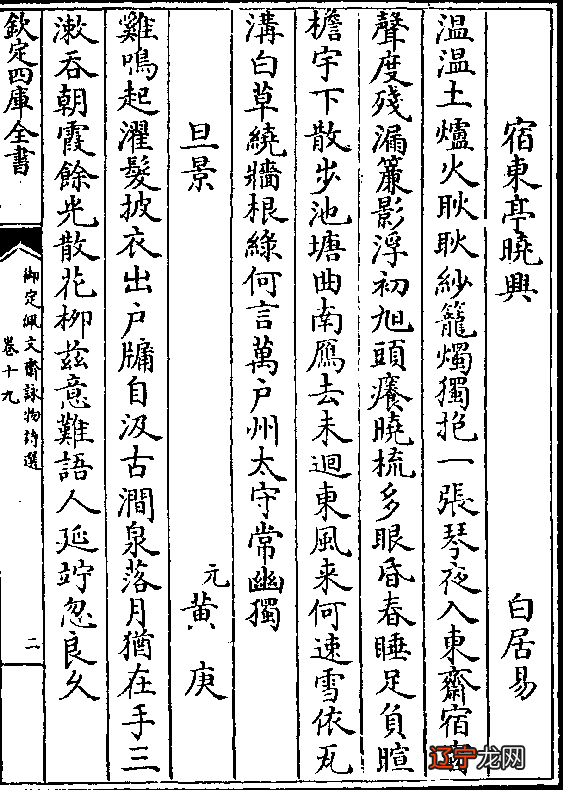 宿東亭曉興 白居易
温温土爐火耿耿紗籠燭獨抱一張琴夜入東齋宿窗
聲度殘漏簾影浮初旭頭癢曉梳多眼昏春睡足負暄
檐宇下散步池塘曲南鴈去未迴東風来何速雪依瓦
溝白草繞牆根綠何言萬户州太守常幽獨
旦景 元黄庚
雞鳴起濯髮披衣出户牖自汲古澗泉落月猶在手三
漱吞朝霞餘光散花栁兹意難語人延竚忽良久
欽定四庫全書
御定佩文齋詠物詩選
卷十九
二
辽宁龙网